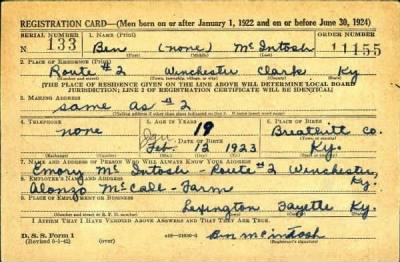 REGISTRATION CARD—(Men born on or after January 1, 1922 and on or before June 30, 1924)
SERIAL NUMBER 1. NAME (Print) ORDER NUMBER
N 133 Ben (none) McIntosh 11155
(First) (Middle) (Last)
2. PLACE OF RESIDENCE (Print)
Route #2 Winchester Clark Ky
(Number and street) (Town, township, village, or city) (County) (State)
[THE PLACE OF RESIDENCE GIVEN ON THE LINE ABOVE WILL DETERMINE LOCAL BOARD
JURISDICTION; LINE 2 OF REGISTRATION CERTIFICATE WILL BE IDENTICAL]
3. MAILING ADDRESS
same as #2
4. TELEPHONE 5. AGE IN YEARS 6. PLACE OF BIRTH
none 19 Breathitt Co.
DATE OF BIRTH
Jan
Feb. 12 1923 Ky.
7. NAME AND ADDRESS OF PERSON WHO WILL ALWAYS KNOW YOUR ADDRESS
Emory McIntosh - Route #2 Winchester, Ky.
8. EMPLOYER'S NAME AND ADDRESS
Alonzo McCall - Farm
9. PLACE OF EMPLOYMENT OR BUSINESS
Lexington Fayette Ky.
(Number and street or R. F. D. number) (Town) (County) (State)
I AFFIRM THAT I HAVE VERIFIED ABOVE ANSWERS AND THAT THEY ARE TRUE.
D. S. S. Form 1
(Revised 6-1-42) (over)
Ben McIntosh
(Registrant's signature)